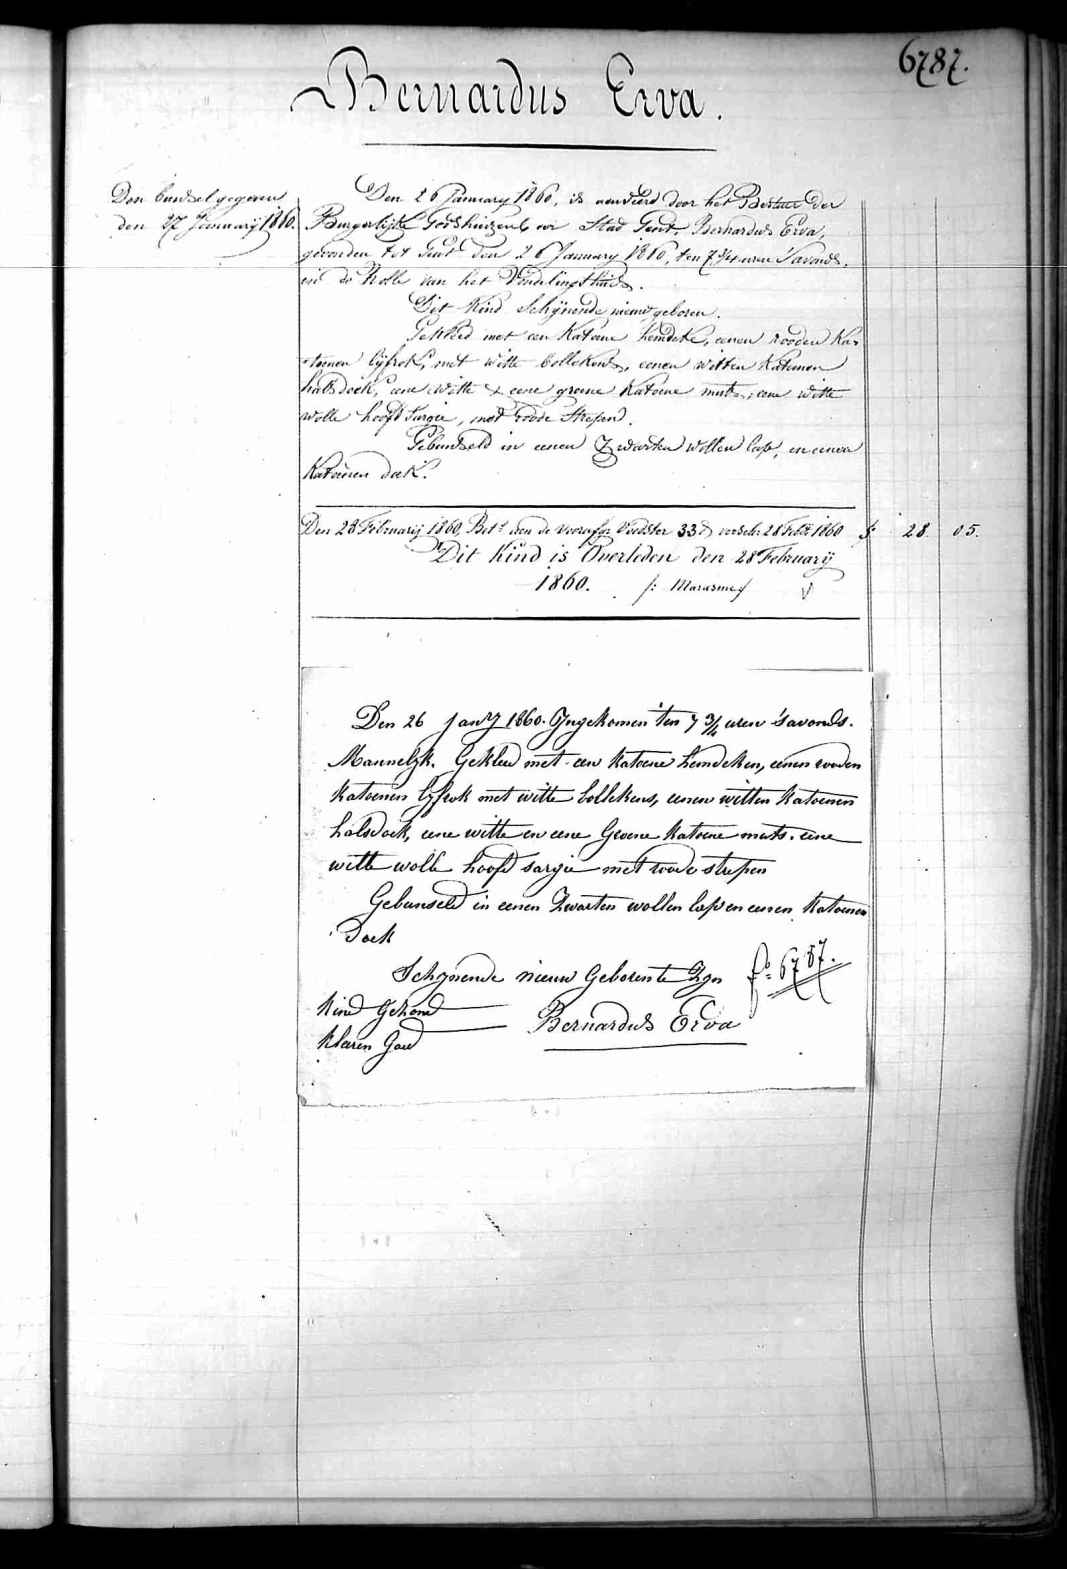 6787.
Bernardus Erva.
Den bunsel gegeven
den 27 Januarij 1860.
Den 26 January 1860, is aenveerd door het Bestuer der
Burgerlijke Godshuizen der Stad Gent, Bernardus Erva,
gevonden tot Gent den 26 January 1860, ten 7 3/4 uren 'Savonds,
in de Rolle van het Vondelingshuis.
Dit Kind Schijnende nieuw geboren.
Gekleed met een Katoene hemdeke, eenen rooden Ka-
-toenen lyfrok, met witte bollekens, eenen witten Katoenen
halsdoek, eene witte & eene groene Katoene muts, eene witte
wolle hoofd Sargie, met roode Strepen.
Gebunseld in eenen Zwarten wollen lap, en eenen
Katoenen doek.
Den 28 Februarij 1860, Bet.d aen de Voedster 33 d 28 Feb. 1860 f 28. 05.
Dit Kind is Overleden den 28 February
1860. /: Marasme /
Den 26 Jan.y 1860. Yngekomen ten 7 3/4 uren 's avonds.
Mannelyk. Gekleed met een Katoene hemdeken, eenen rooden
Katoenen lyfrok met witte bollekens, eenen witten Katoenen
halsdoek, eene witte en eene Groene Katoene muts. eene
witte wolle hoofd sargie met roode strepen
Gebunseld in eenen Zwarten wollen lap en eenen Katoenen
Doek
Schynende nieuw Geboren te Zyn fo 6787.
Kind Gezond
Kleeren Goed Bernardus Erva